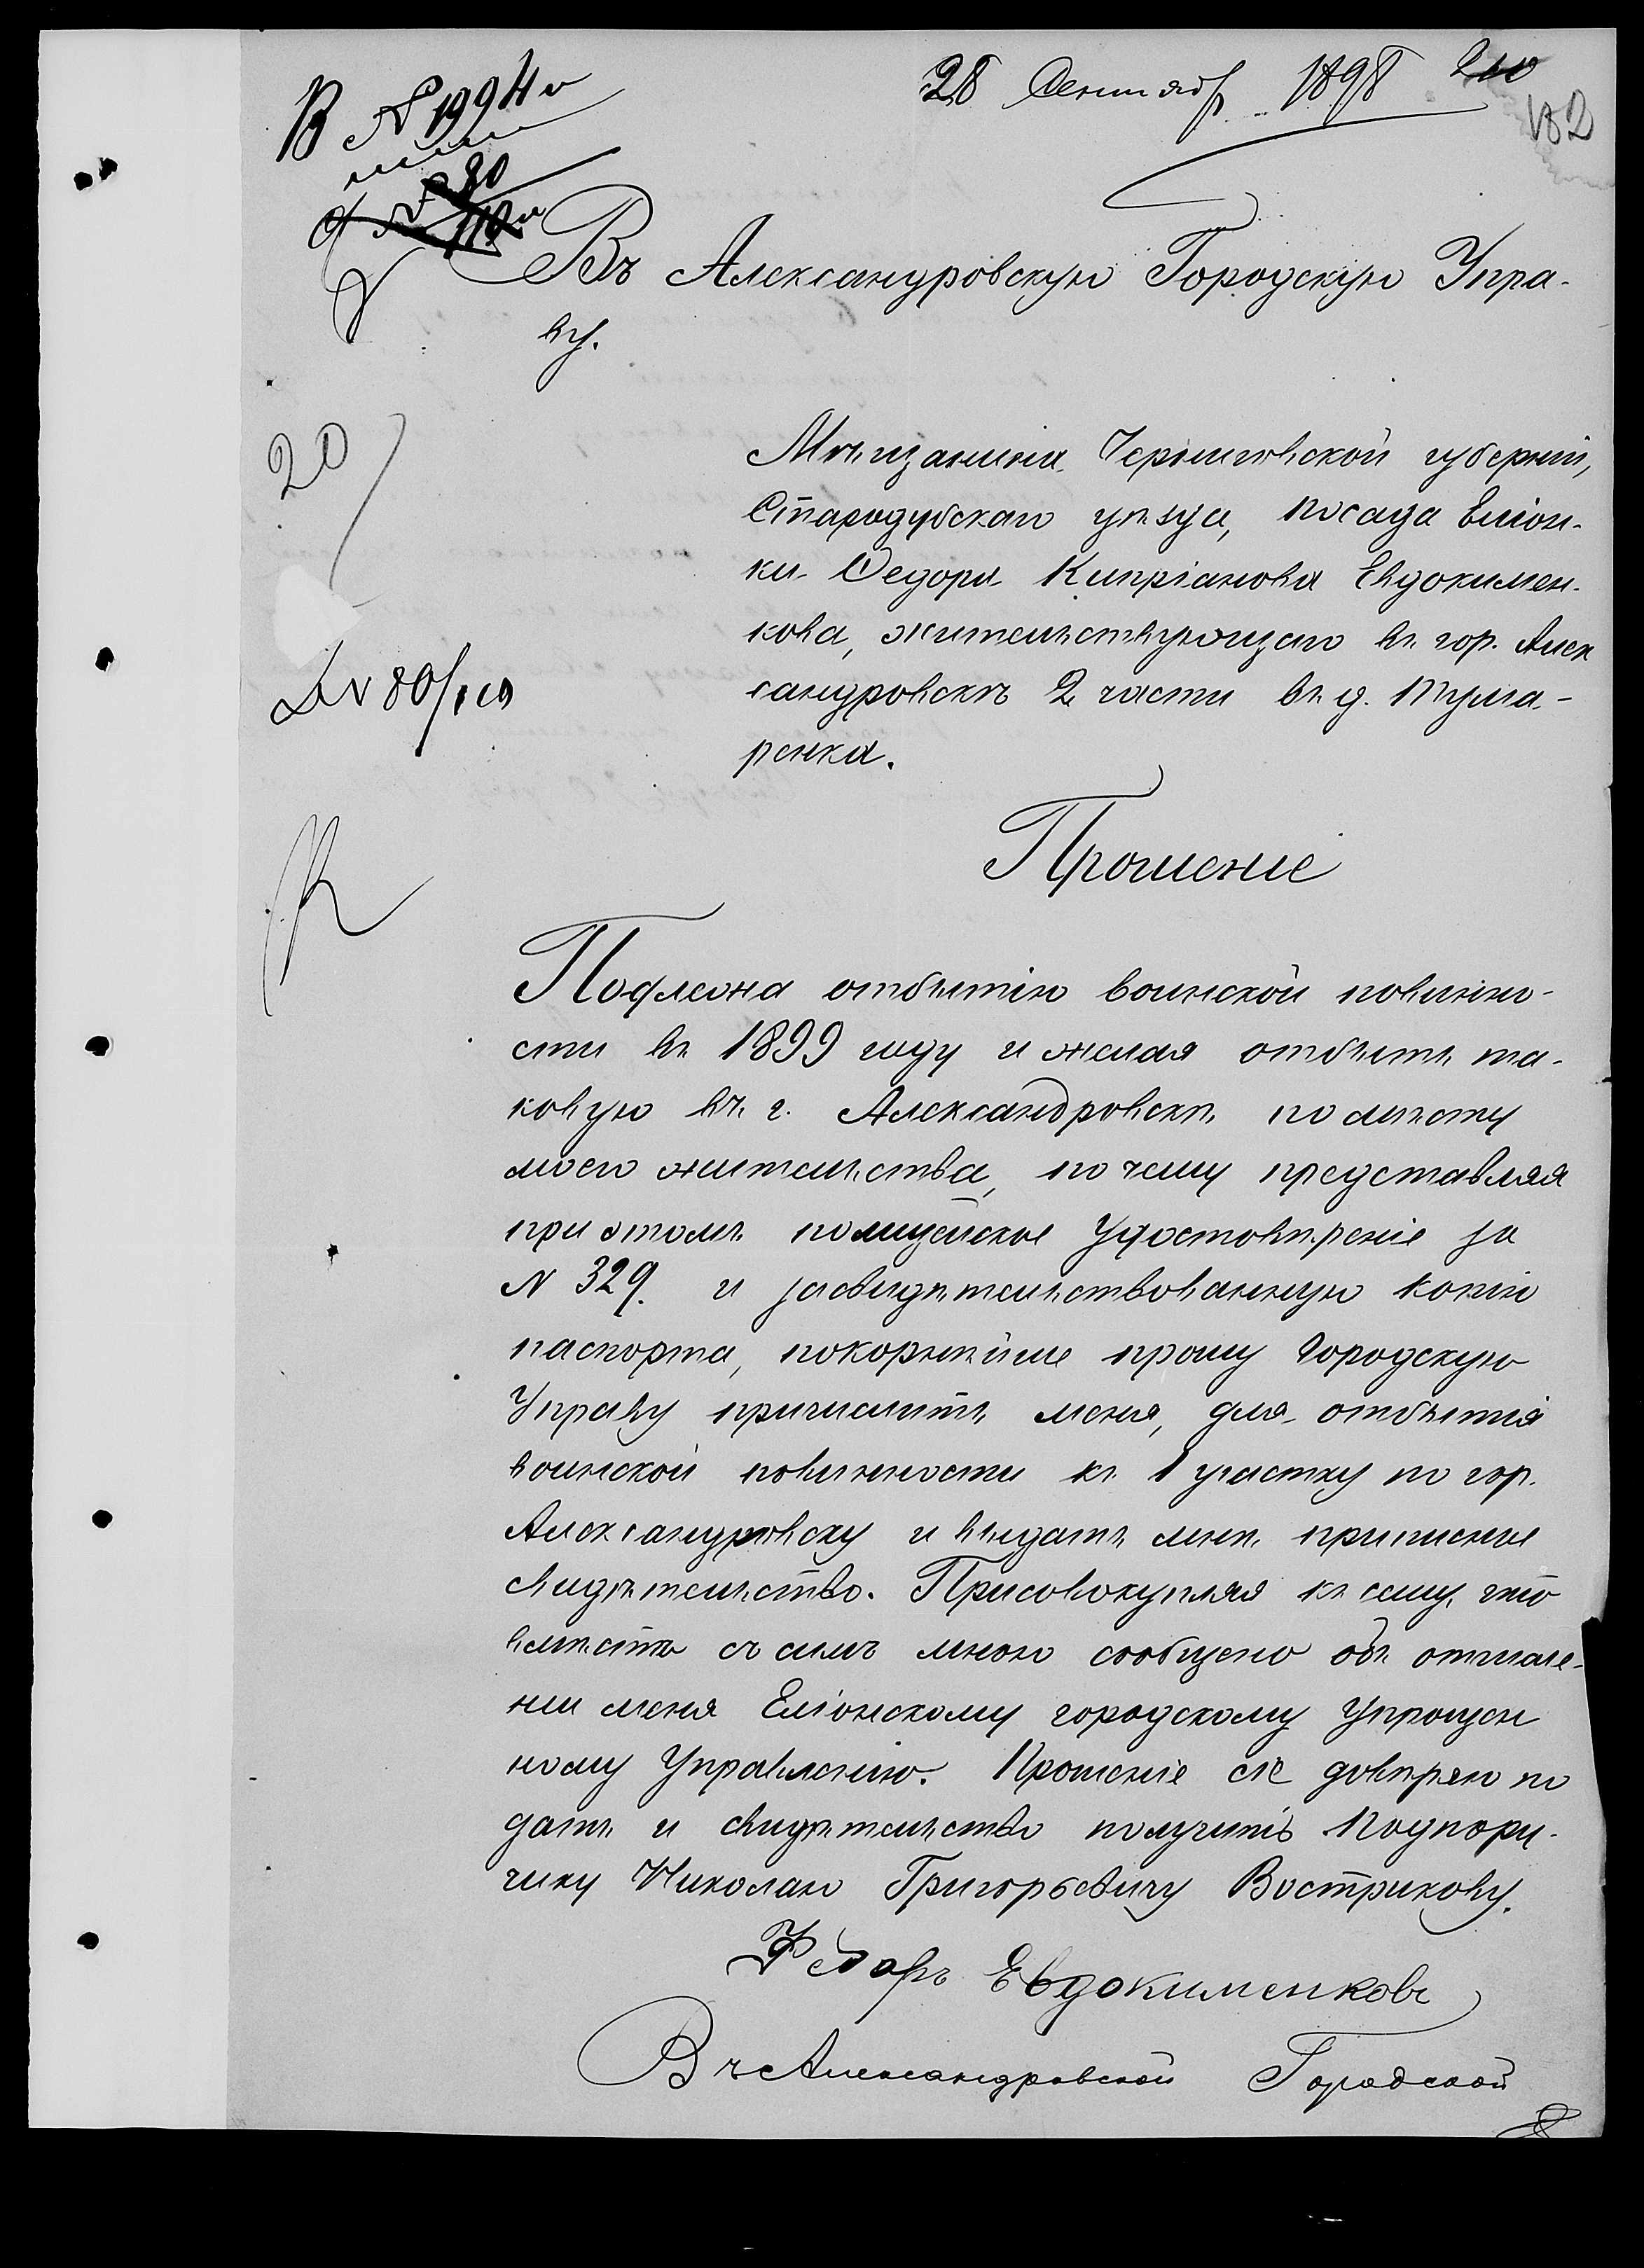 28 Сентября 1898
182
В № 1994
Въ Александровскую Городскую Упра-
ву.
20
Мѣщанина Черниговской губерніи,
Стародубскаго уѣзда, посада Еліон-
ки Ѳедора Кипріанова Евдокимен-
кова, жительствующаго въ гор. Алек
сандровскѣ 2 части въ д.
ренка.
№ 80/
Прошеніе
Подлежа отбытію воинской повинно-
сти въ 1899 году и желая отбыть та-
ковую въ г. Александровскѣ по мѣсту
моего жительства, почему представляя
при этомъ полицейское Удостовѣреніе за
N 329. и засвидѣтельствованную копію
паспорта, покорнѣйше прошу Городскую
Управу причислить меня, для отбытія
воинской повинности къ 1 участку по гор.
Александровску и выдать мнѣ приписное
свидѣтельство. Присовокупляя къ сему, что
вмѣстѣ съ симъ мною сообщено объ отчисле-
нии меня Еліонскому городскому Упрощен
ному Управленію. Прошеніе сіе довѣряю по
дать и свидѣтельство получить Подпору-
чику Николаю Григорьевичу Вострикову.
Федоръ Евдокименковъ
Въ Александровской Городской